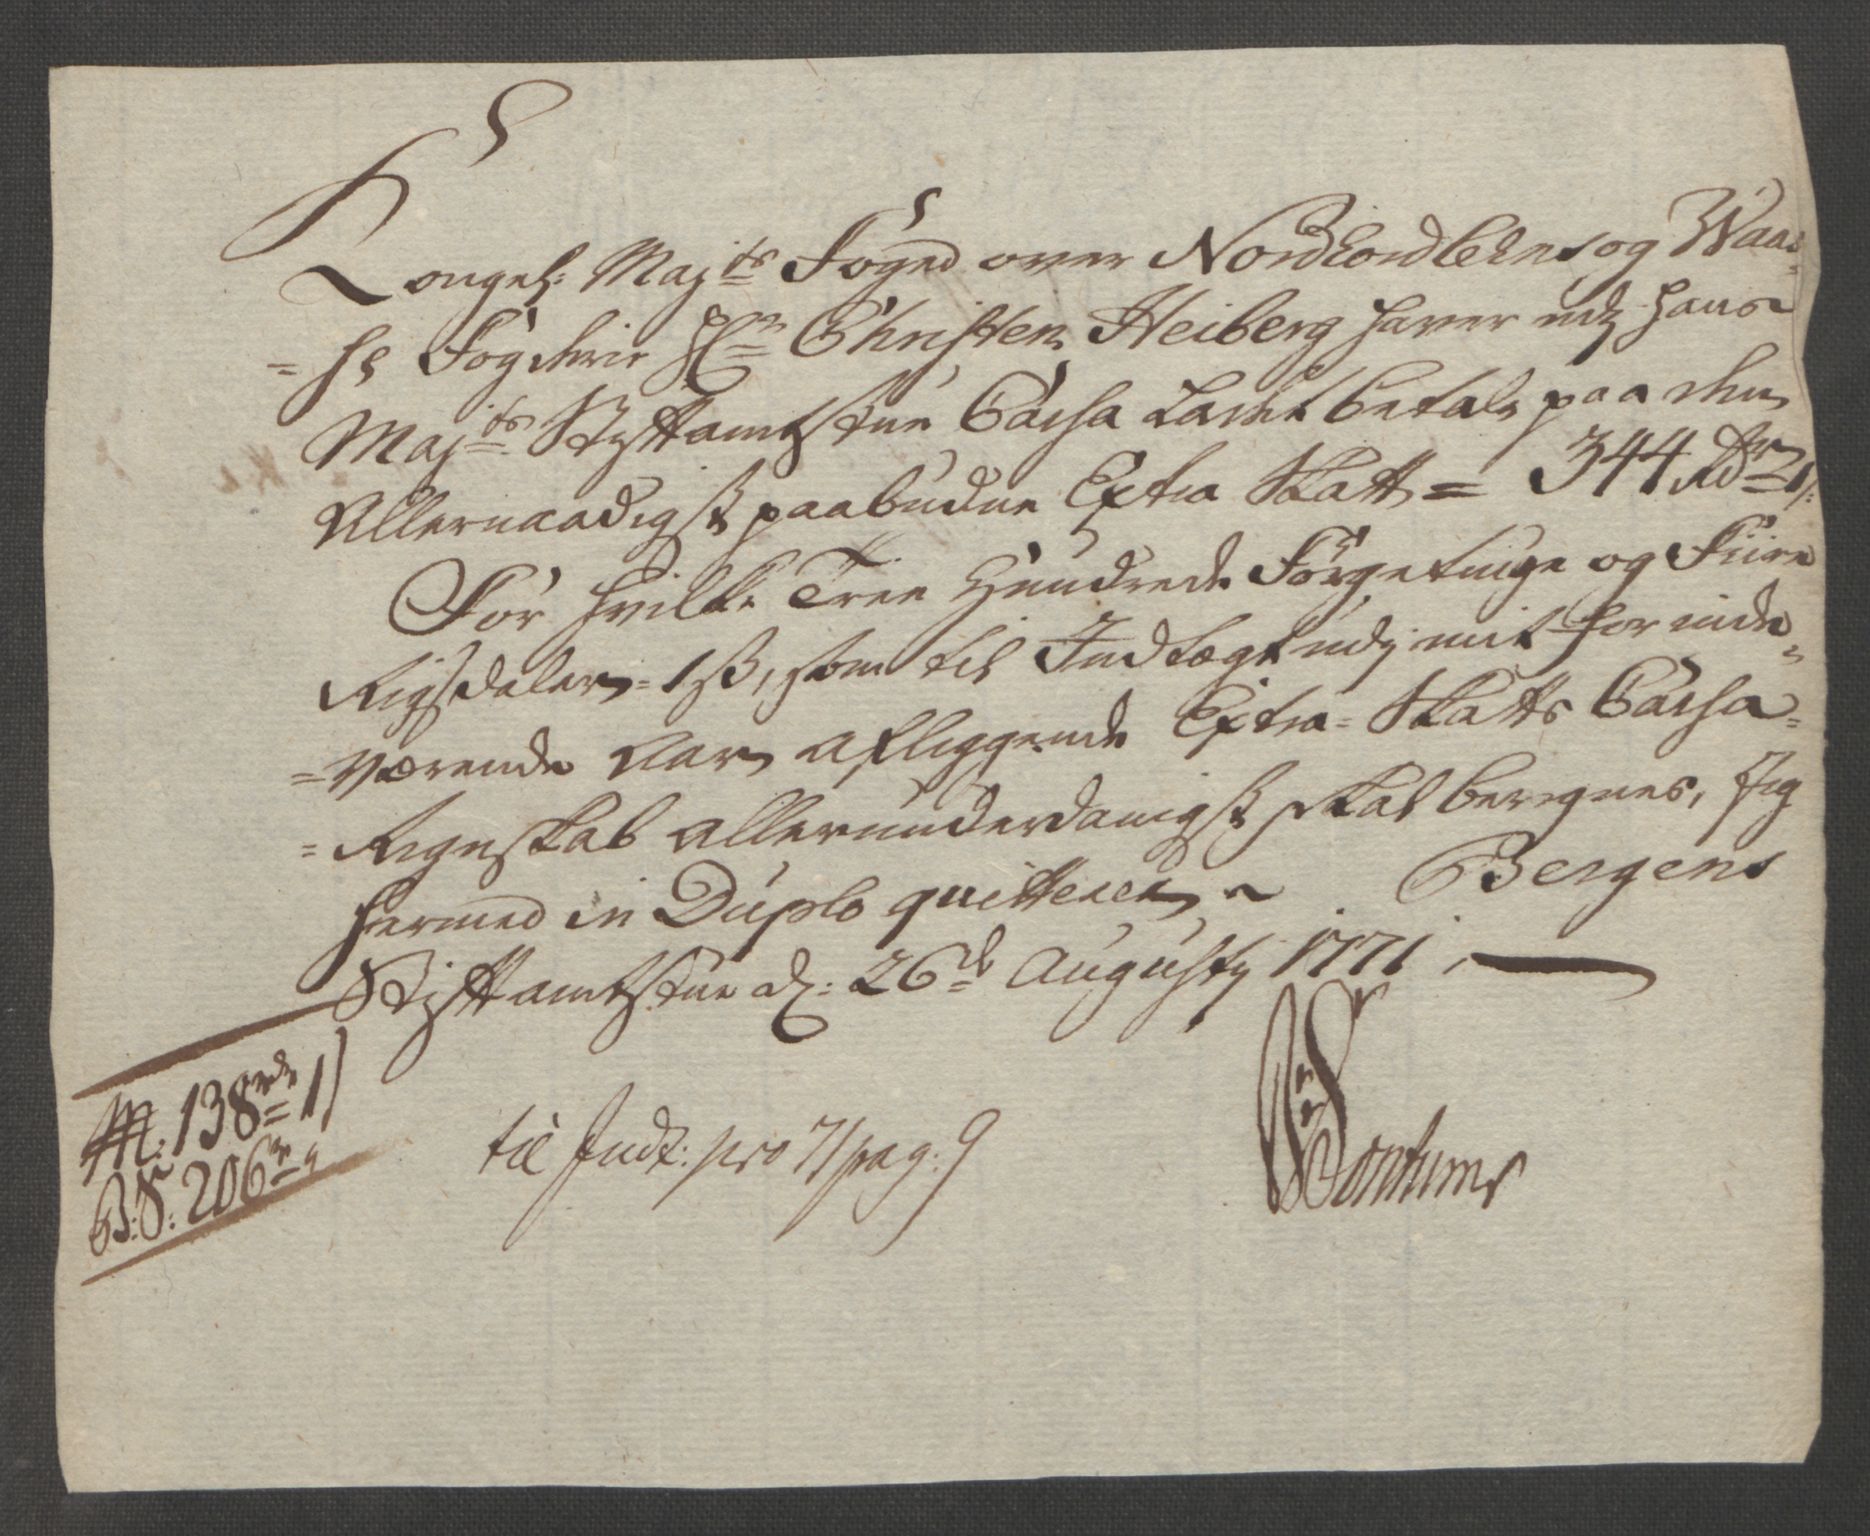 Kongel: Maj:ts Foged over Nordhordlehns og Waas-
=se Fogderie Hr: Christen Heiberg haver udj Hans
Maj:ts Stiftamtstue Cassa ladet betale paa den
Allernaadigst paabudne Extra Skatt = 344 Rdr 1 s:
For hvilke Tree Hundrede Förgetiuge og Fiire
Rigsdaler 1 s, som til Indtægt udj mit for inde-
=værende Aar aflæggende Extra-Skatts Cassa-
=Regnskab allerunderdanigst skal beregnes, Jeg
hermed in Duplo quitterer. Bergens
Stiftamtstue d: 26de Augusty 1771.
M: 138rd 1 s
B:S: 206r
til Indt: pro 71 pag: 9
Sontums